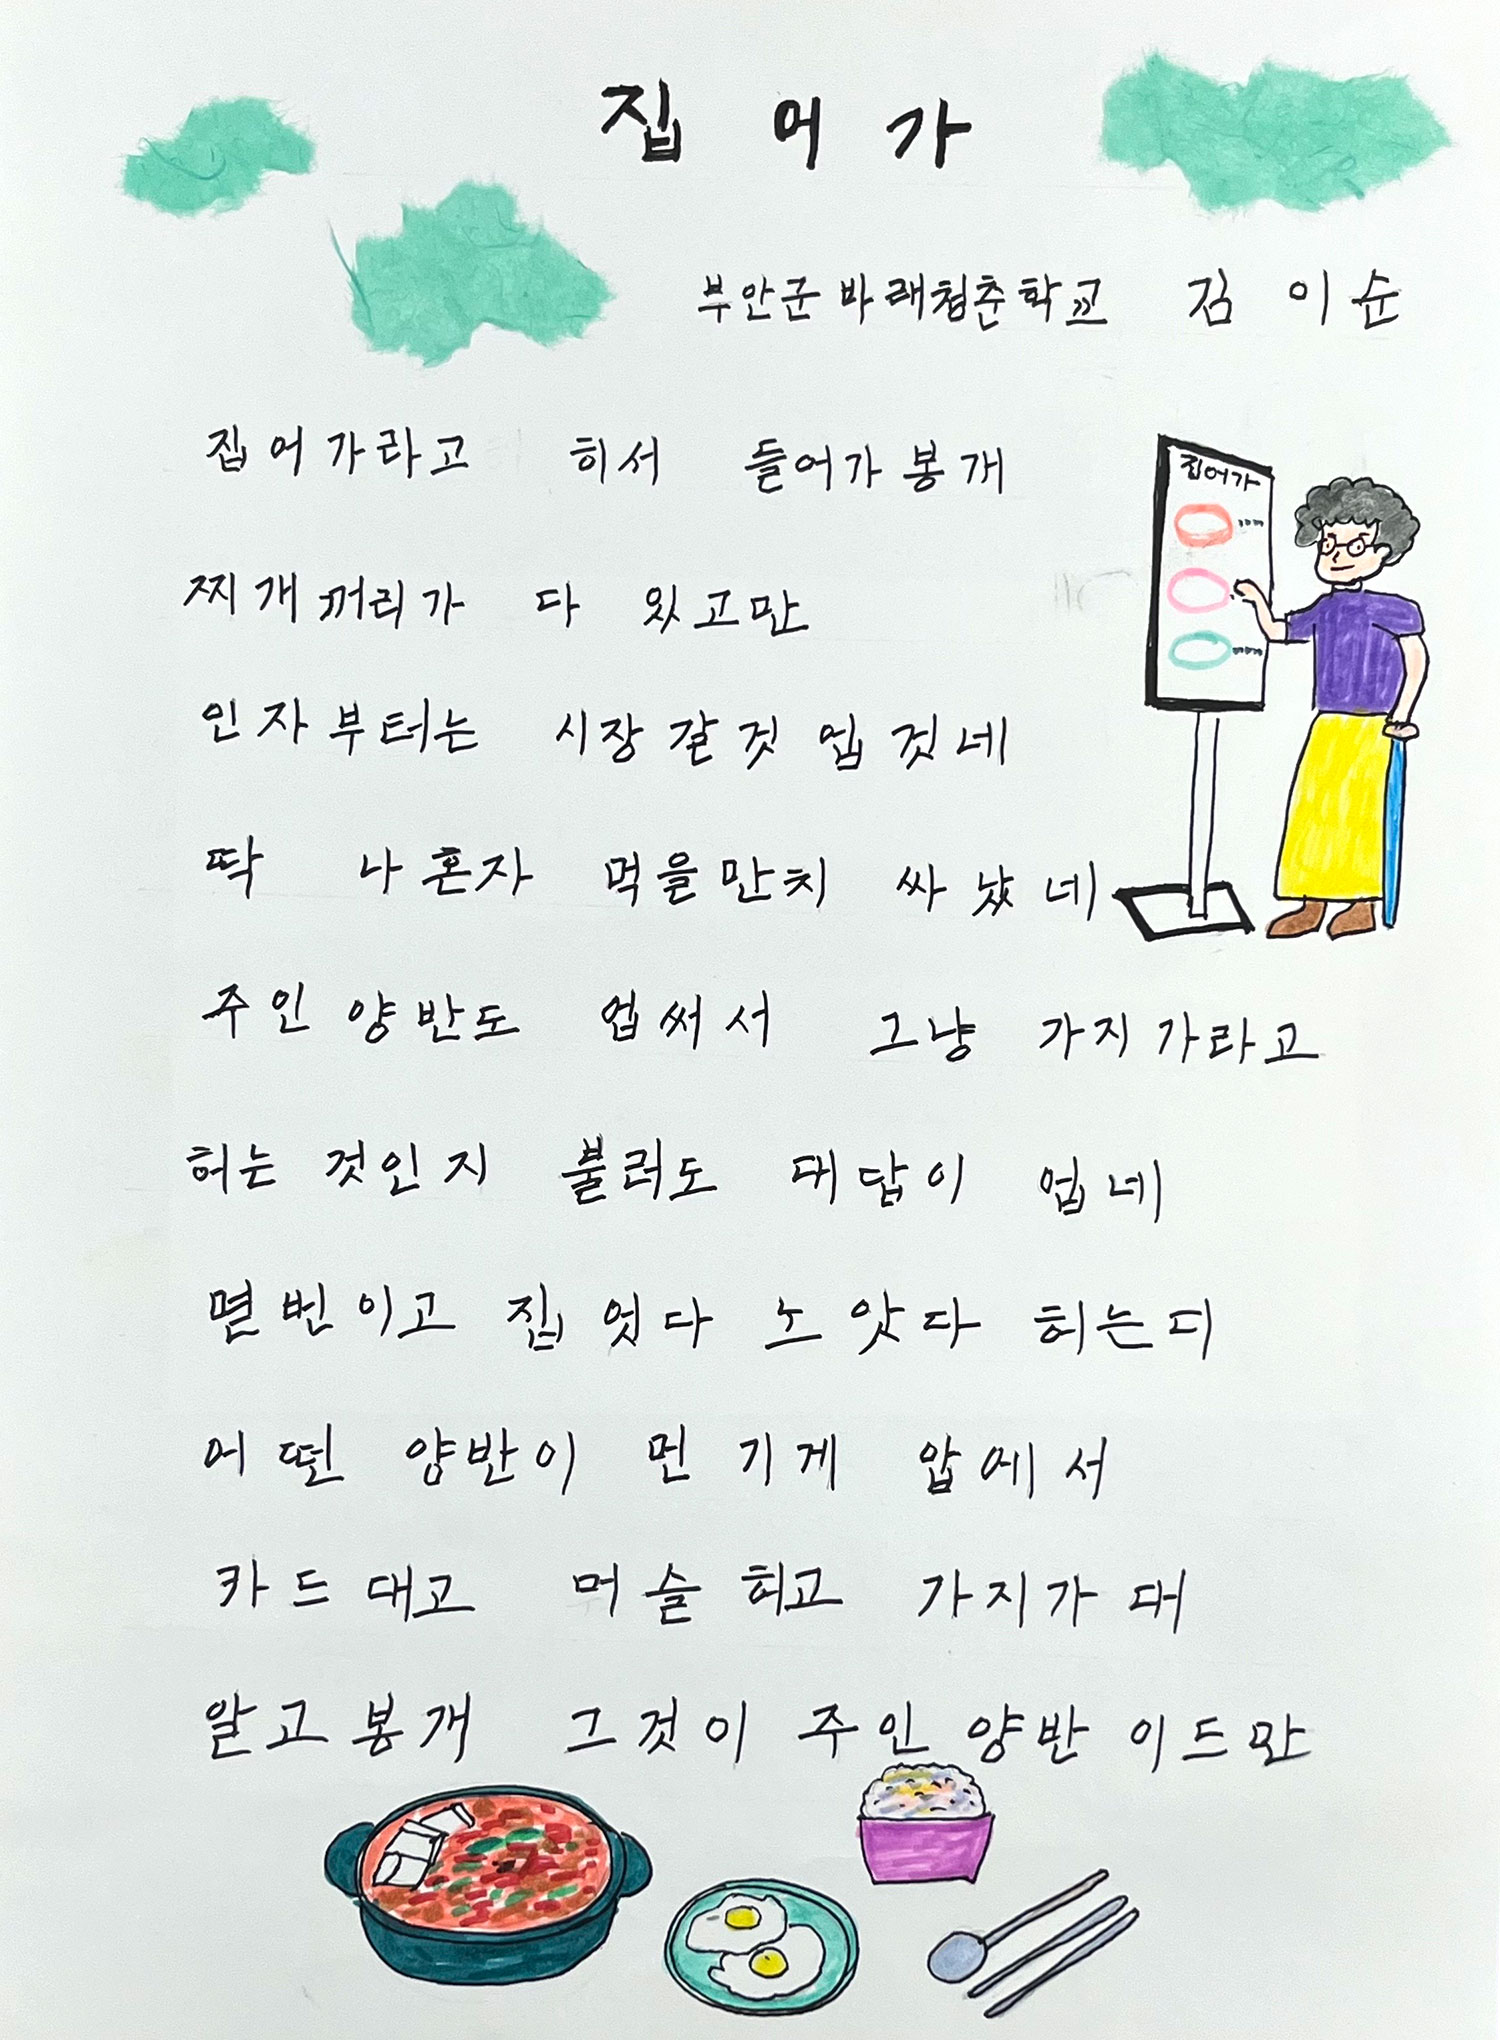 집어가
부안군바래청춘학교 김이순
집어가라고 히서 들어가봉개
찌개꺼리가 다 있고만
인자부터는 시장갈것 업것네
딱 나혼자 먹을만치 싸놨네
주인양반도 업써서 그냥 가지가라고
허는 것인지 불러도 대답이 업네
몉번이고 집엇다 노앗다 허는디
어떤 양반이 먼 기게 압에서
카드대고 머슬 허고 가지가대
알고봉개 그것이 주인양반이드만
집어가